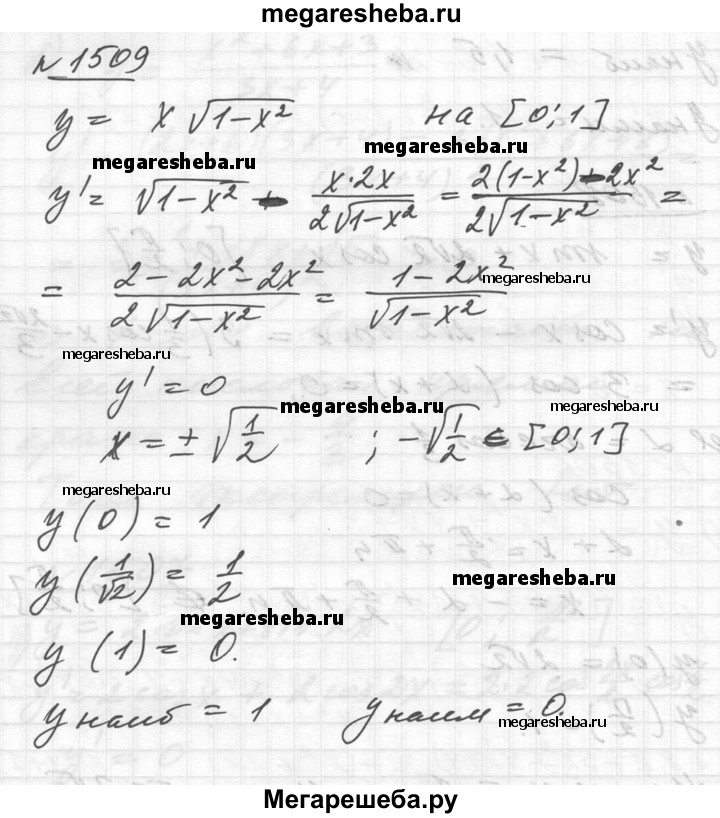 megaresheba.ru
№ 1509
y = x √(1-x²) на [0;1]
megaresheba.ru megaresheba.ru
y' = √(1-x²) - x·2x / 2√(1-x²) = 2(1-x²)-2x² / 2√(1-x²) =
= 2-2x²-2x² / 2√(1-x²) = 1-2x² / √(1-x²)
megaresheba.ru
megaresheba.ru
y' = 0
megaresheba.ru megaresheba.ru
x = ± √(1/2) ; -√(1/2) ∈ [0;1]
megaresheba.ru
y(0) = 1
y(1/√2) = 1/2
megaresheba.ru
megaresheba.ru
y(1) = 0.
y наиб = 1 y наим = 0.
megaresheba.ru
Мегарешеба.ру